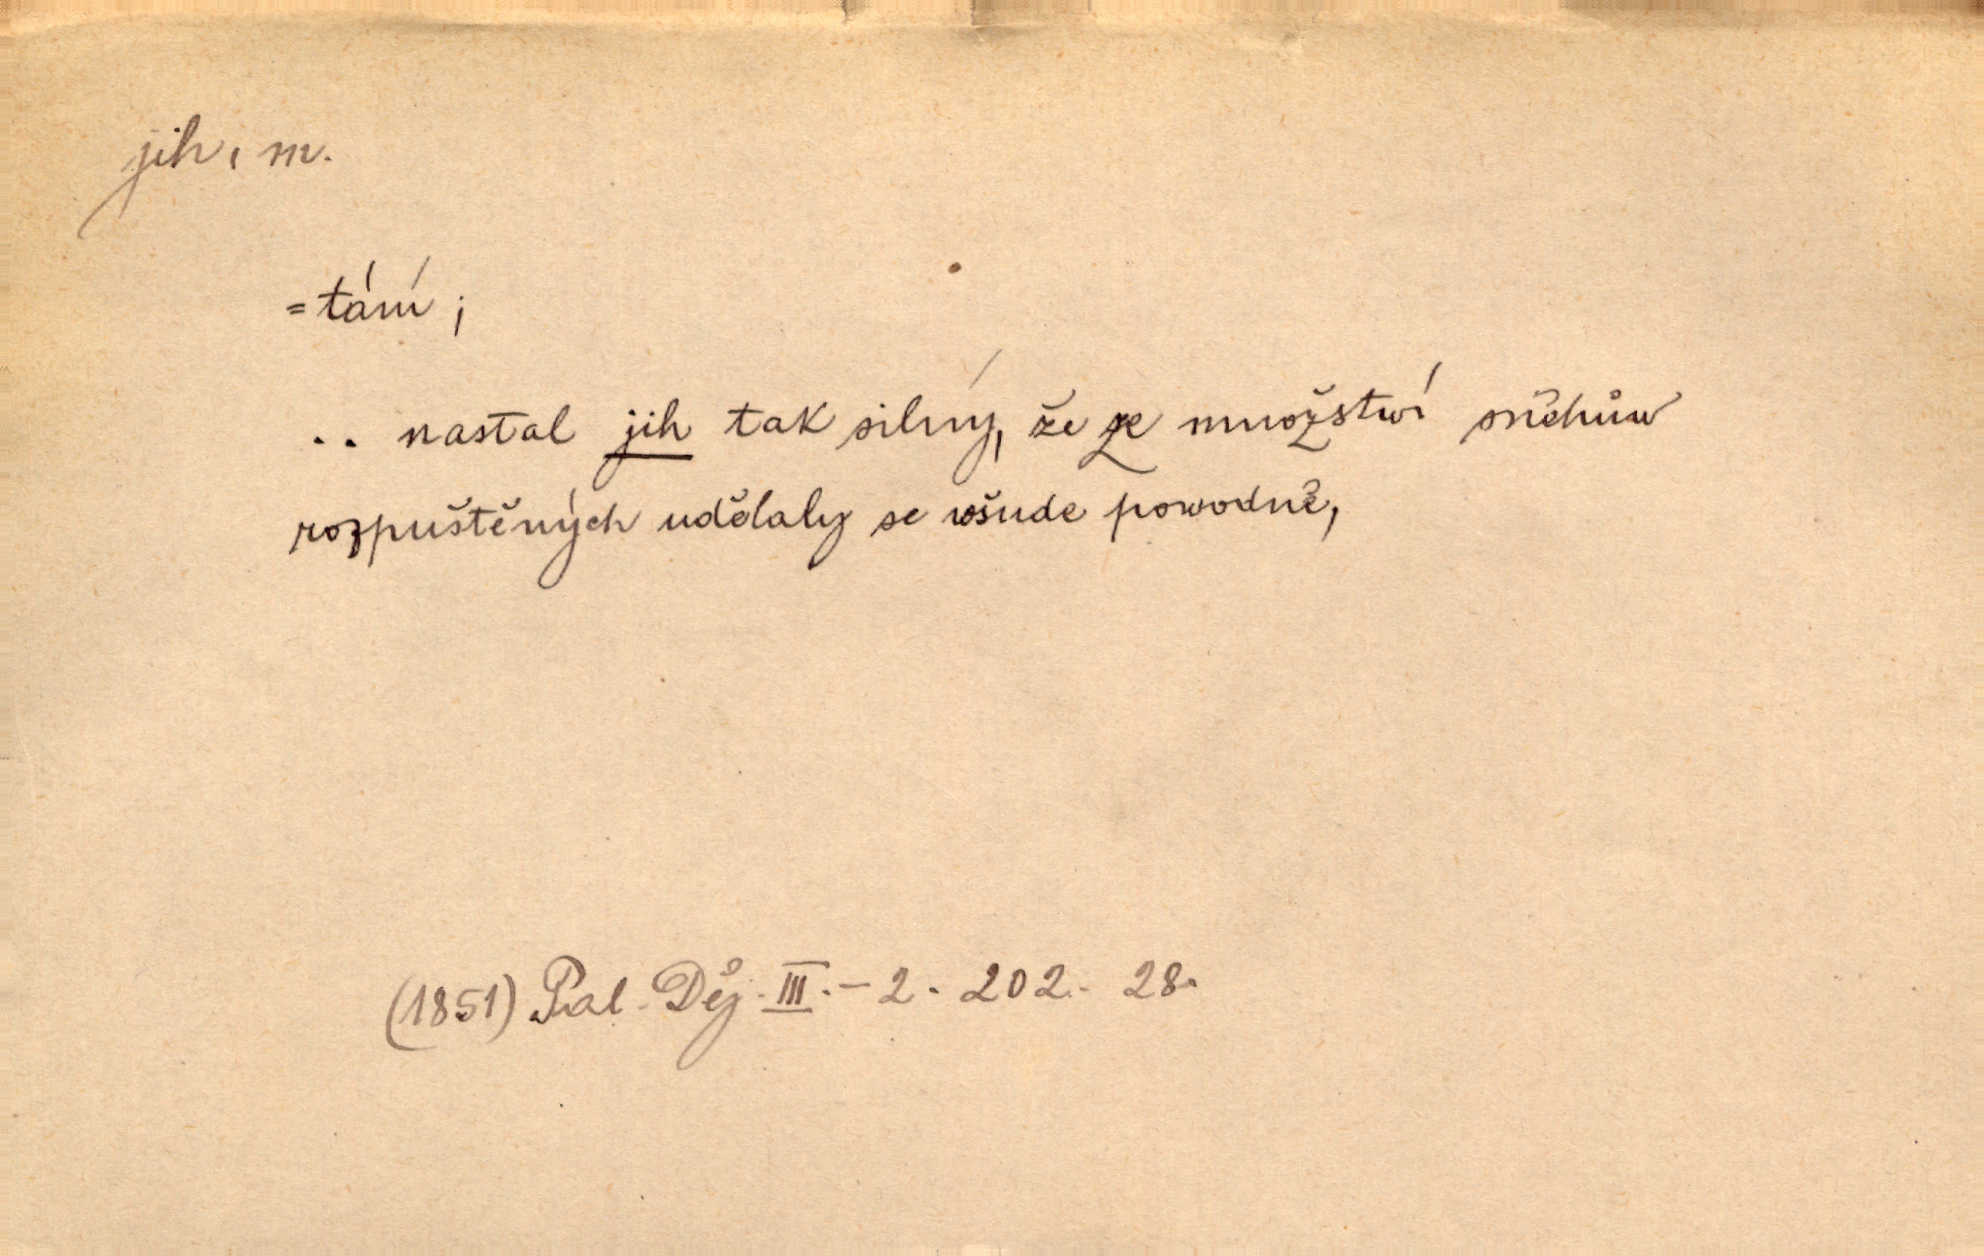 jih, m.
= tání;
.. nastal jih tak silný, že ze množstwí sněhůw
rozpuštěných udělaly se wšude powodně,
(1851) Pal. Děj. III. – 2. 202. 28.